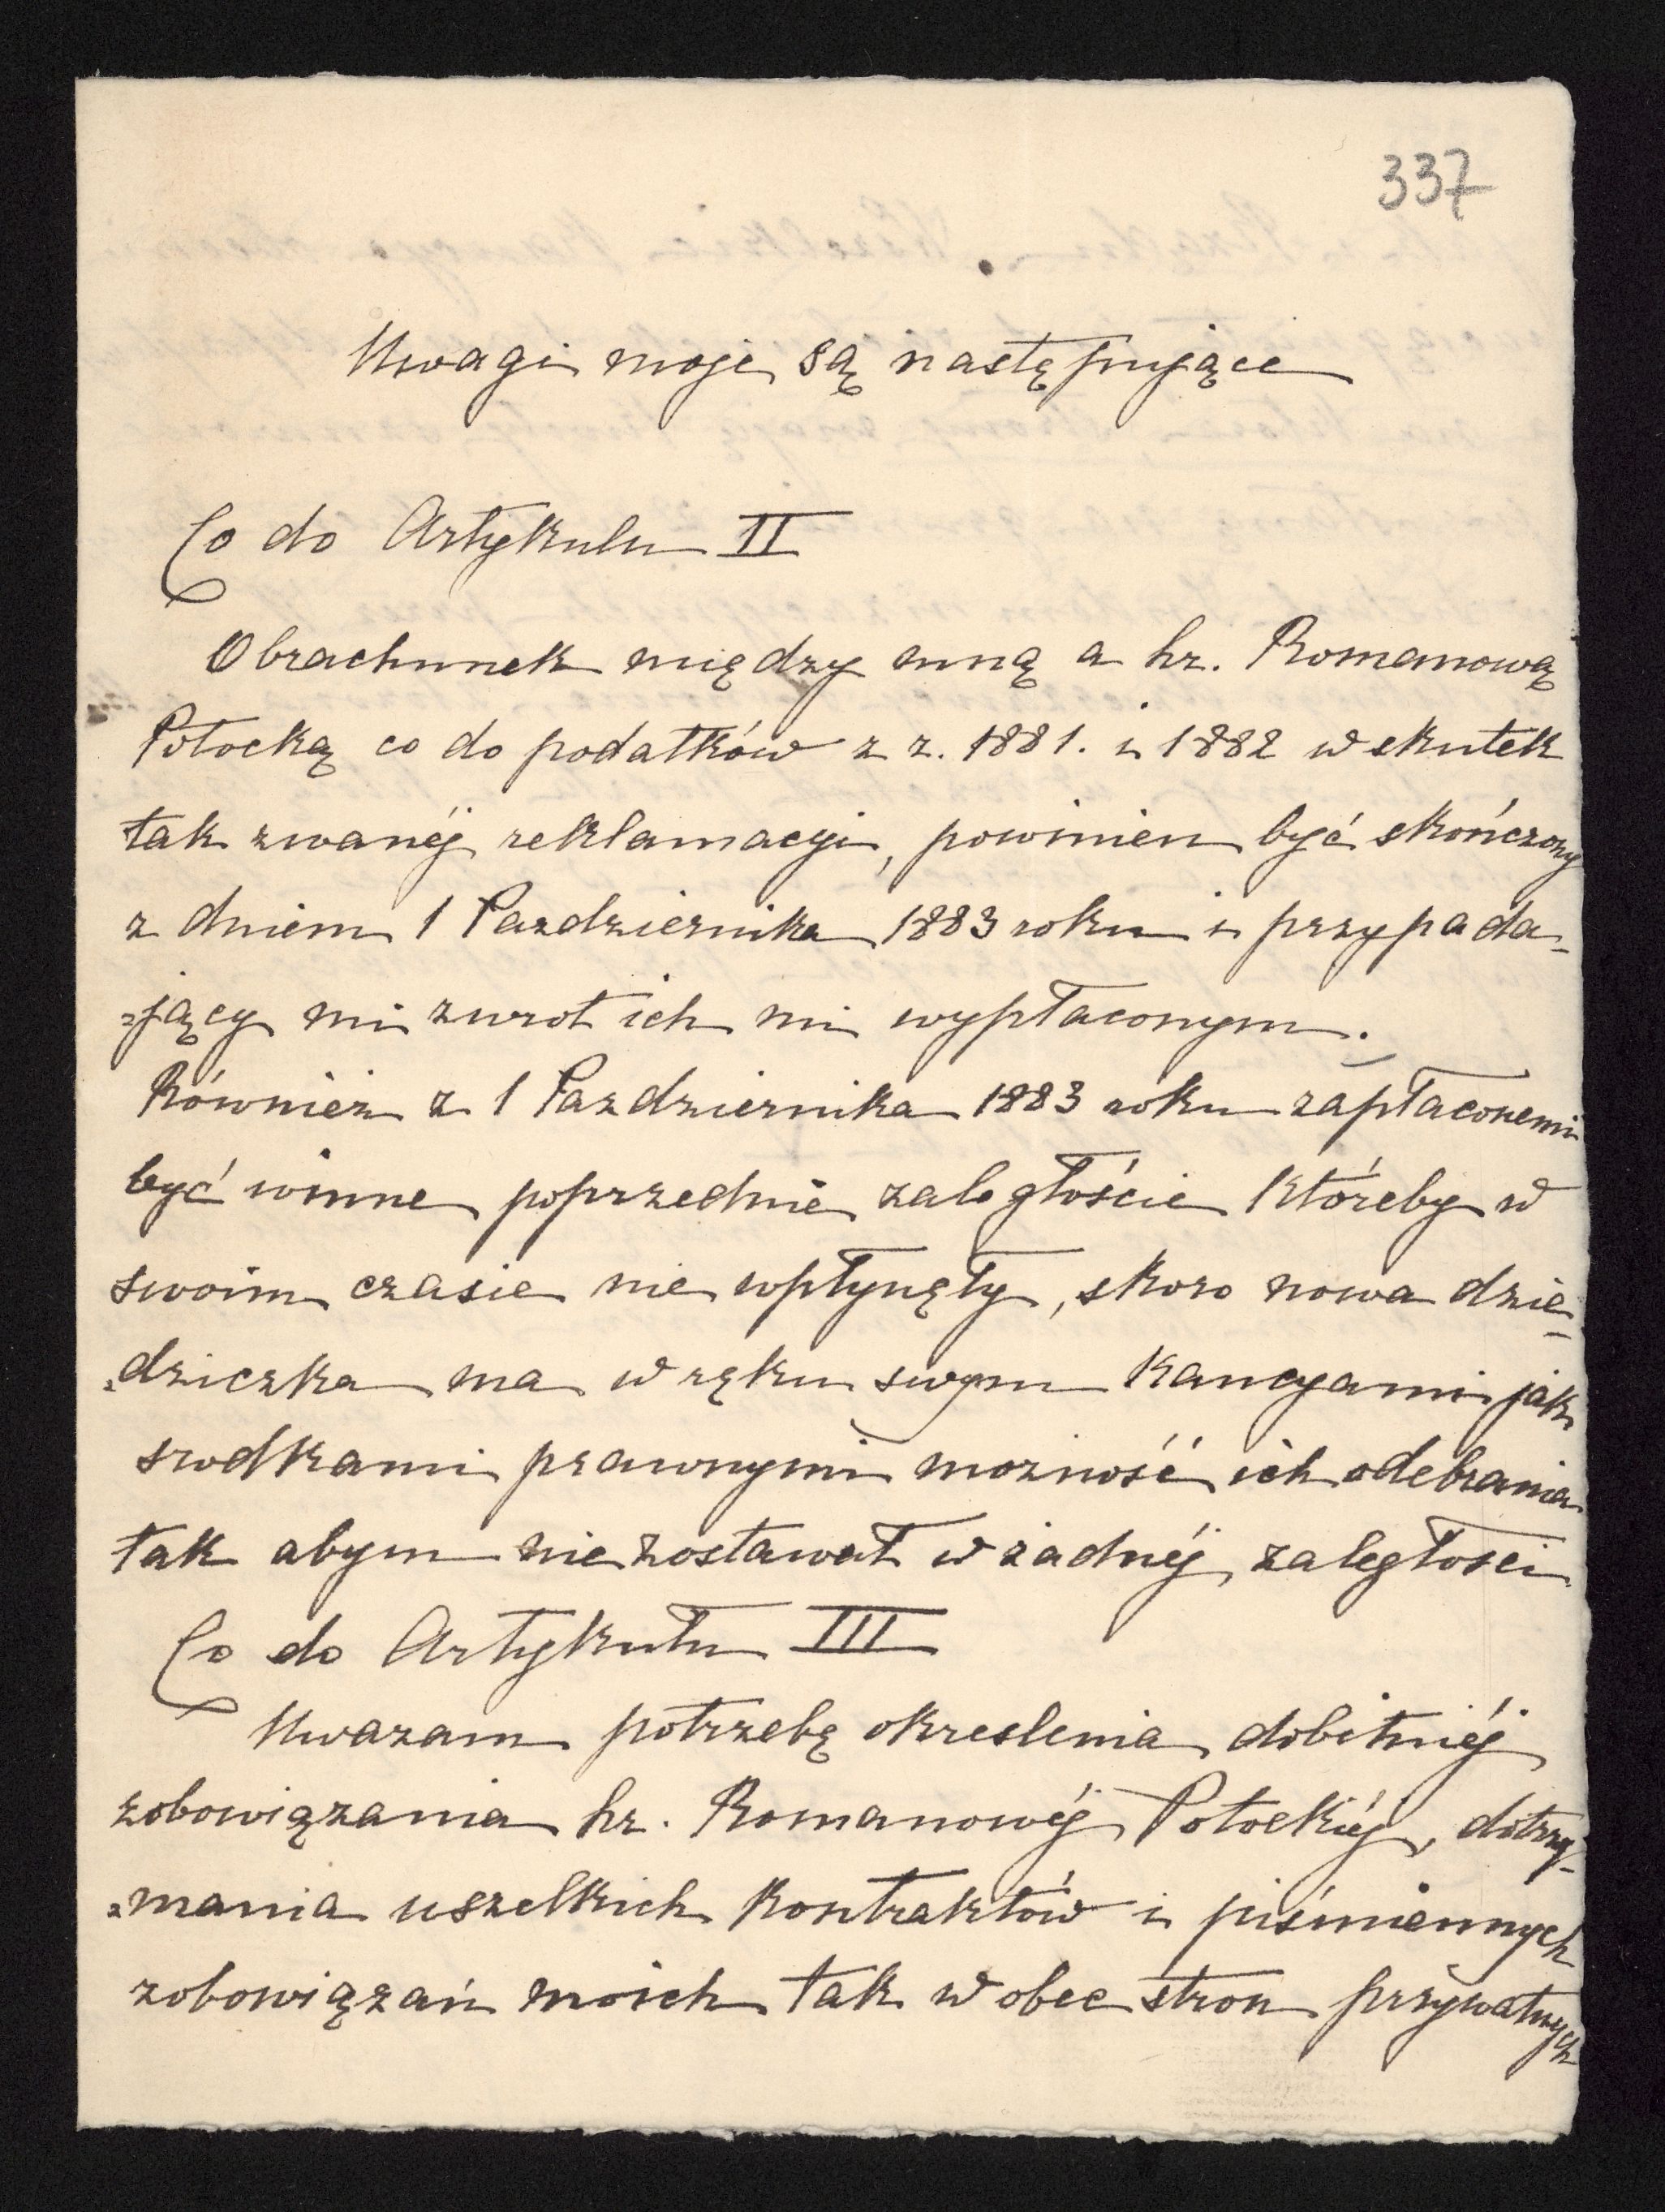 337
Uwagi moje są następujące
Co do Artykulu II
Obrachunek między mną a hr. Romanową
Potocką co do podatków z r. 1881. i 1882 w skutek
tak zwanéj reklamacyi, powinien być skończony
z dniem 1 Pazdziernika 1883 roku i przypada-
=jący mi zwrot ich mi wypłaconym.
Również z 1 Pazdziernika 1883 roku zapłaconemi
być winne poprzednie zaległoście któreby w
swoim czasie nie wpłynęły, skoro nowa dzie-
=dziczka ma w ręku swym kaucyami jak
srodkami prawnymi mozność ich odebrania
tak abym nie zostawał w żadnéj zaległosci
Co do Artykułu III
Uwazam potrzebę okreslenia dobitniéj
zobowiązania hr. Romanowéj Potockiéj, dotrzy-
=mania wszelkich kontraktów i piśmiennych
zobowiązań moich tak w obec stron prywatnych